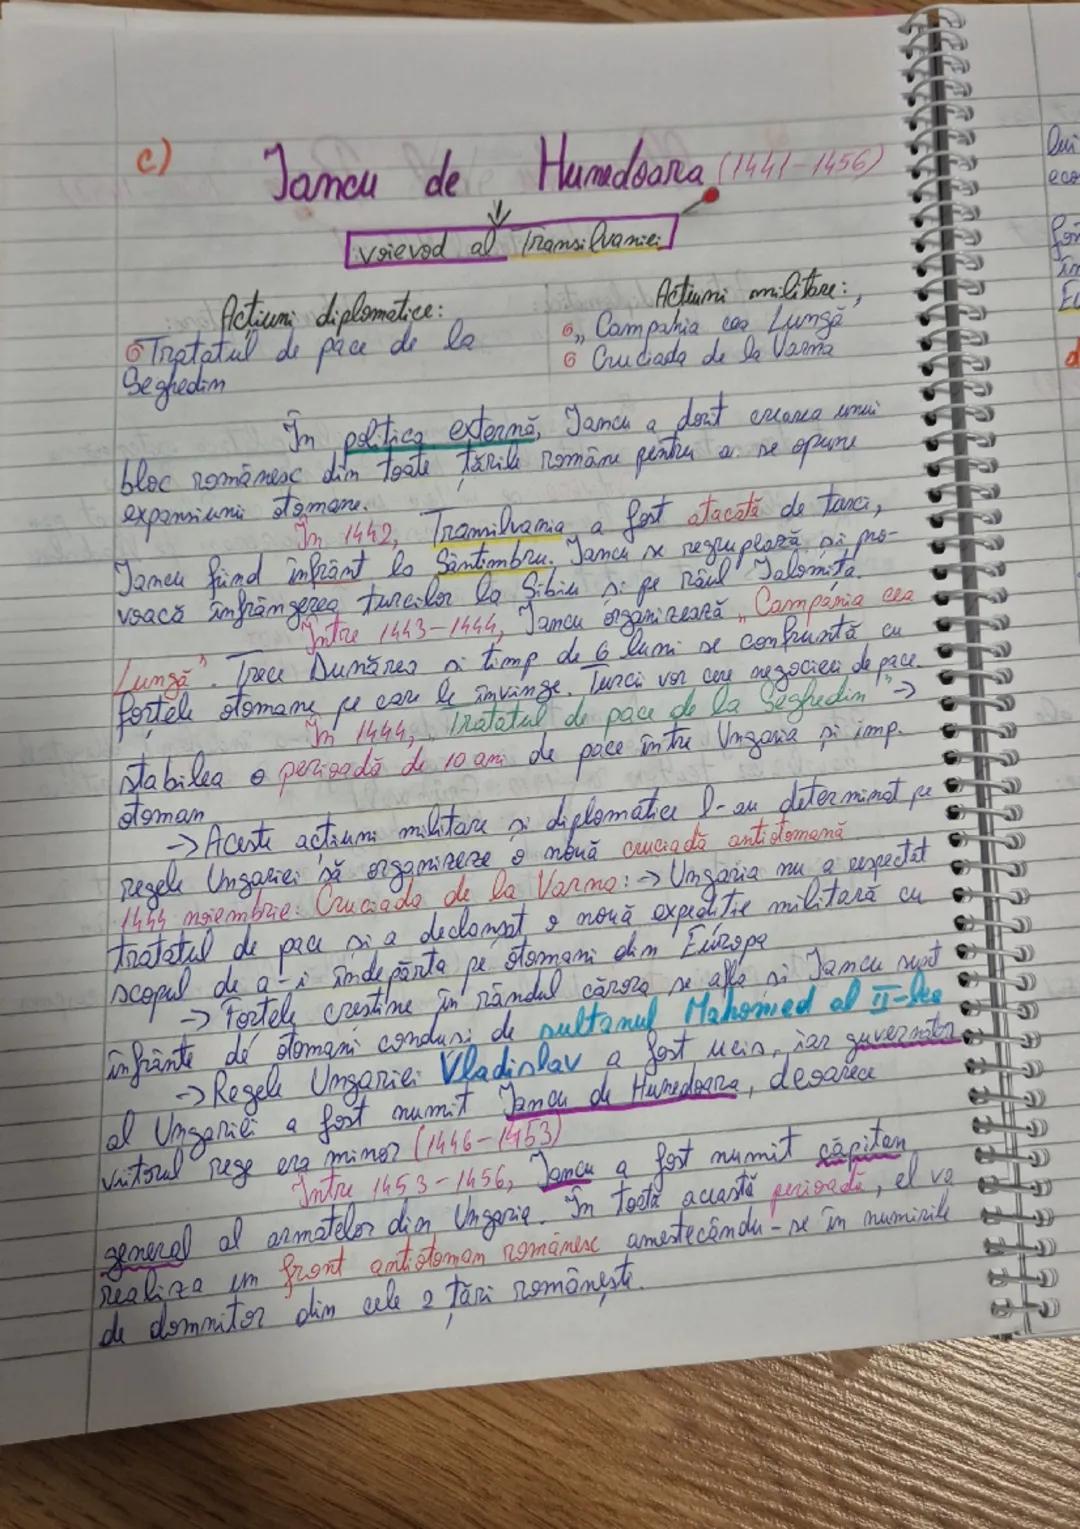 c) Iancu de Hunedoara (1441-1456)
voievod al Transilvaniei
Acțiuni diplomatice:
Tratatul de pace de la
Seghedin
Acțiuni militare:
„Campania cea Lungă
Cruciada de la Varna
În politica externă, Iancu a dorit crearea unui
bloc românesc din toate țările române pentru a se opune
expansiunii otomane.
În 1442, Transilvania a fost atacată de turci,
Iancu fiind înfrânt la Sântimbru. Iancu se regrupează și pro-
voacă înfrângerea turcilor la Sibiu și pe râul Ialomița.
Între 1443-1444, Iancu organizează „Campania cea
Lungă". Trece Dunărea și timp de 6 luni se confruntă cu
forțele otomane pe care le învinge. Turcii vor cere negocieri de pace.
În 1444, „Tratatul de pace de la Seghedin" →
stabilea o perioadă de 10 ani de pace între Ungaria și imp.
otoman
→ Aceste acțiuni militare și diplomatice l-au determinat pe
regele Ungariei să organizeze o nouă cruciadă antiotomană
1444 noiembrie: Cruciada de la Varna: → Ungaria nu a respectat
tratatul de pace și a declanșat o nouă expediție militară cu
scopul de a-i îndepărta pe otomani din Europa
→ Forțele creștine în rândul cărora se afla și Iancu sunt
înfrânte de otomani conduși de sultanul Mahomed al II-lea
→ Regele Ungariei Vladislav a fost ucis, iar guvernator
al Ungariei a fost numit Iancu de Hunedoara, deoarece
viitorul rege era minor (1446-1453)
Între 1453-1456, Iancu a fost numit căpitan
general al armatelor din Ungaria. În toată această perioadă, el va
realiza un front antiotoman românesc amestecându-se în numirile
de domnitor din cele 2 țări românește.
lui
eco